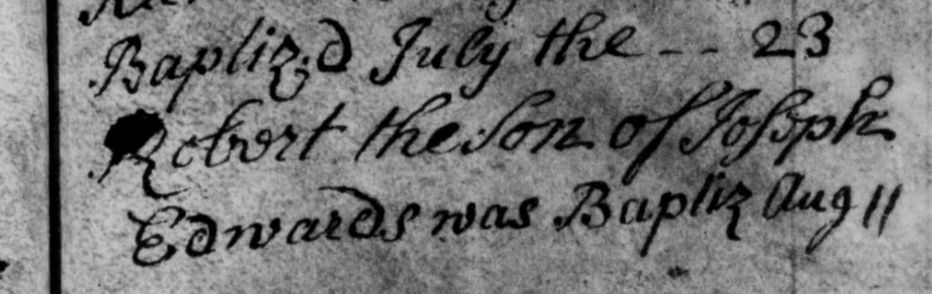 Baptiz:d July the -- 23
Robert the Son of Joseph
Edwards was Baptiz Aug 11